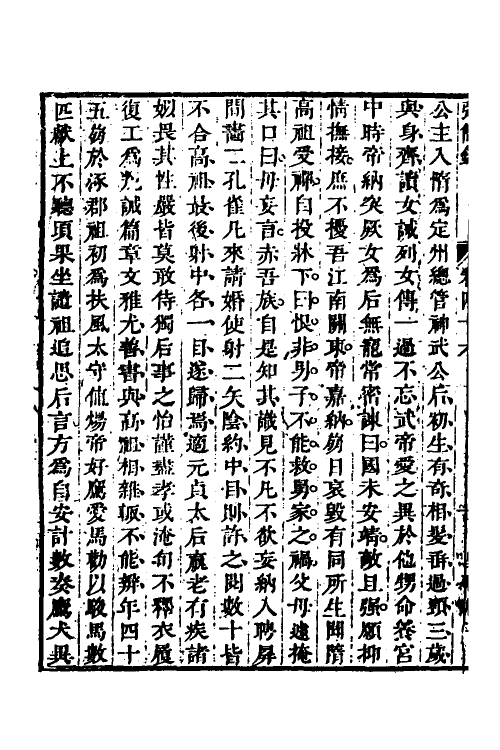 公主入隋爲定州總管神武公后初生有奇相髮垂過頸三歲
與身齊讀女誡列女傳一過不忘武帝愛之異於他甥命養宮
中時帝納突厥女爲后無寵常密諫曰國未安靖敵且强願抑
情撫接庶不擾吾江南關東帝嘉納崩日哀毀有同所生聞隋
高祖受禪自投牀下曰恨非男子不能救舅家之禍父母遽掩
其口曰毋妄言赤吾族自是知其識見不凡不欲妄納入聘屏
間畫二孔雀凡來請婚使射二矢陰約中目則許之閱數十皆
不合高祖最後射中各一目遂歸焉適元貞太后羸老有疾諸
姒畏其性嚴皆莫敢侍獨后事之怡謹盡孝或淹旬不釋衣履
復工爲規誡篇章文雅尤善書與高祖相雜眡不能辨年四十
五崩於涿郡祖初爲扶風太守值煬帝好鷹愛馬勸以駿馬數
匹獻上不聽項果坐譴祖追思后言方爲自安計數奏鷹犬異